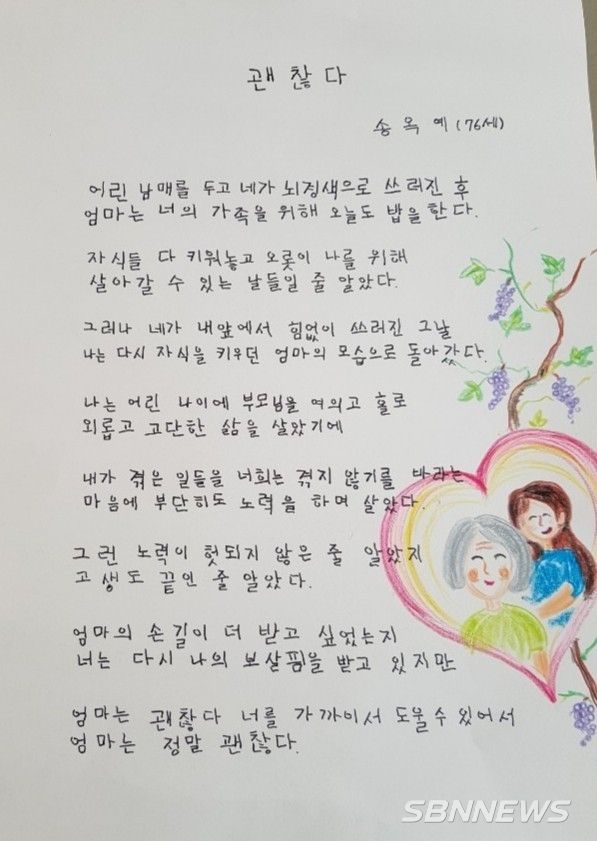 괜찮다
송옥예 (76세)
어린 남매를 두고 네가 뇌경색으로 쓰러진 후
엄마는 너의 가족을 위해 오늘도 밥을 한다.
자식들 다 키워놓고 오롯이 나를 위해
살아갈 수 있는 날들일 줄 알았다.
그러나 네가 내앞에서 힘없이 쓰러진 그날
나는 다시 자식을 키우던 엄마의 모습으로 돌아갔다.
나는 어린 나이에 부모님을 여의고 홀로
외롭고 고단한 삶을 살았기에
내가 겪은 일들을 너희는 겪지 않기를 바라는
마음에 부단히도 노력을 하며 살았다.
그런 노력이 헛되지 않은 줄 알았지
고생도 끝인 줄 알았다.
엄마의 손길이 더 받고 싶었는지
너는 다시 나의 보살핌을 받고 있지만
엄마는 괜찮다 너를 가까이서 도울수있어서
엄마는 정말 괜찮다.
SBNNEWS